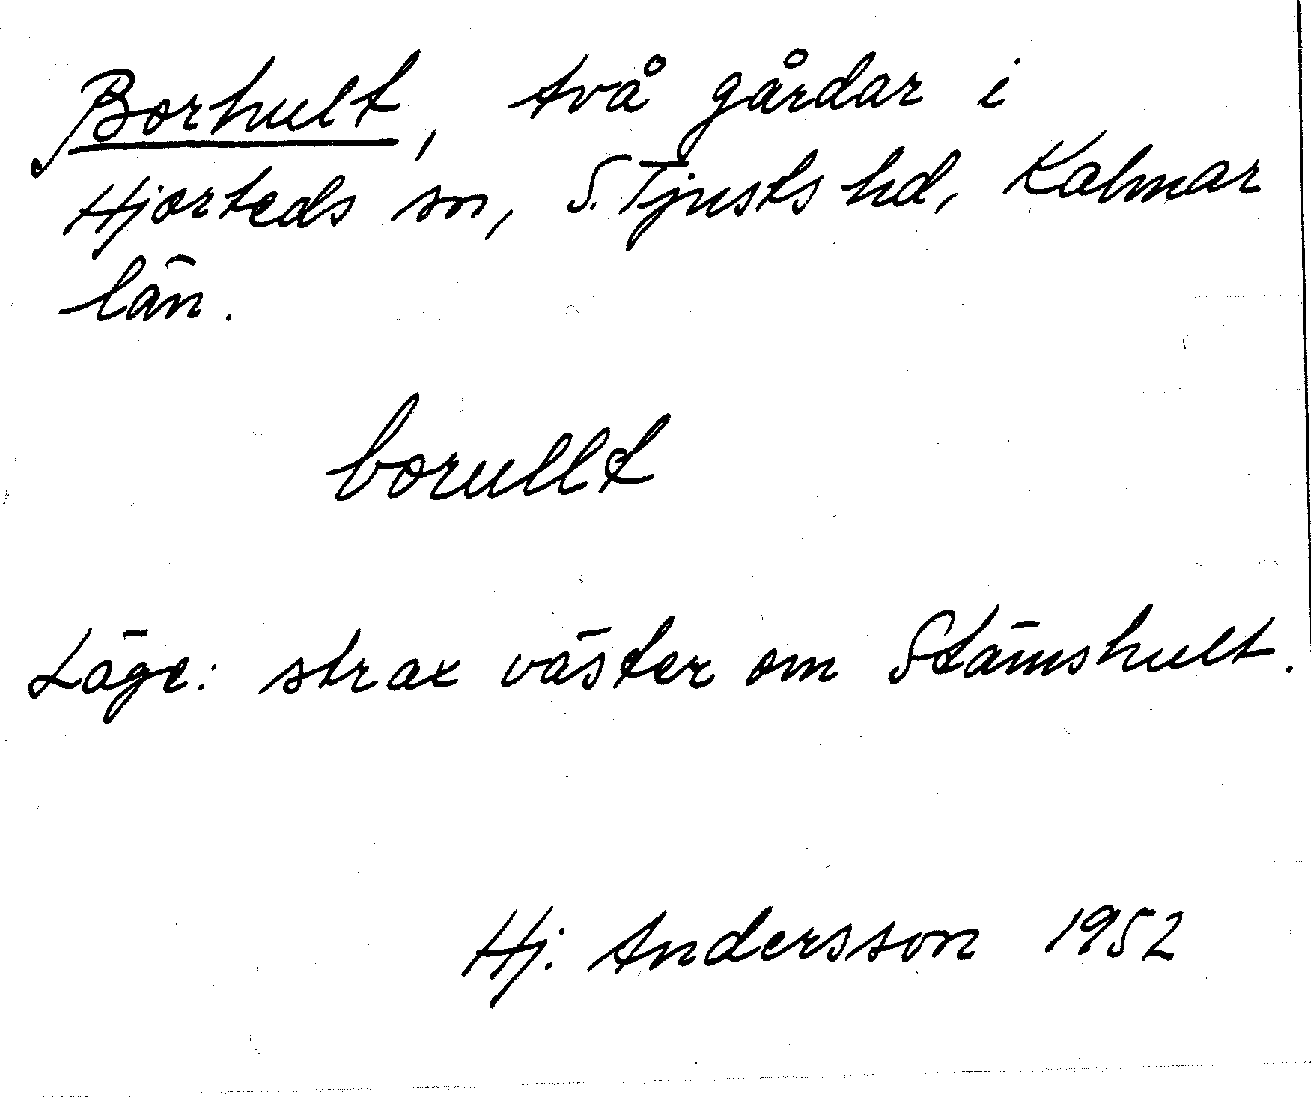 Borhult, två gårdar i
Hjorteds sn, S. Tjusts hd, Kalmar
län.
borullt
Läge: strax väster om Stämshult.
Hj. Andersson 1952